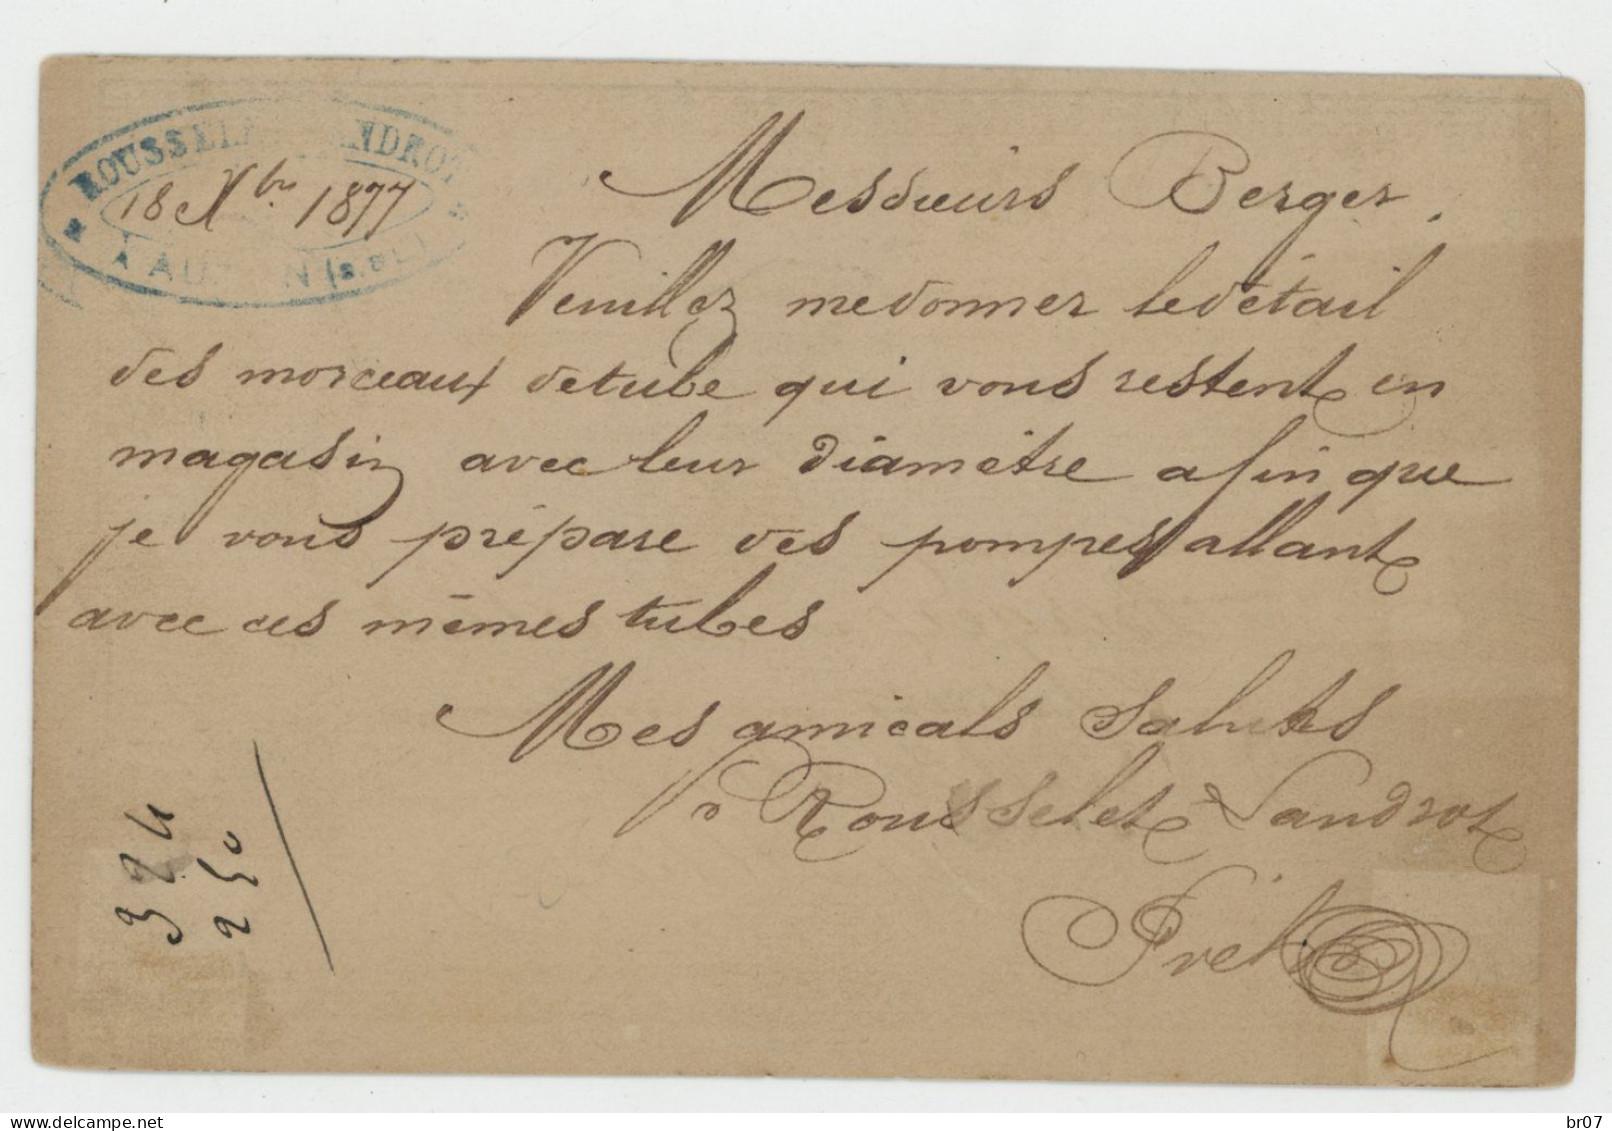 ROUSSELET LANDROT
18 Xbre 1877
A AUTUN (S.&L.)
Messieurs Berger.
Veuillez me donner le détail
des morceaux de tube qui vous restent en
magasin avec leur diamètre afin que
je vous prépare des pompes allant
avec ces mêmes tubes
Mes amicals saluts
Rousselet Landrot
324
250
br07